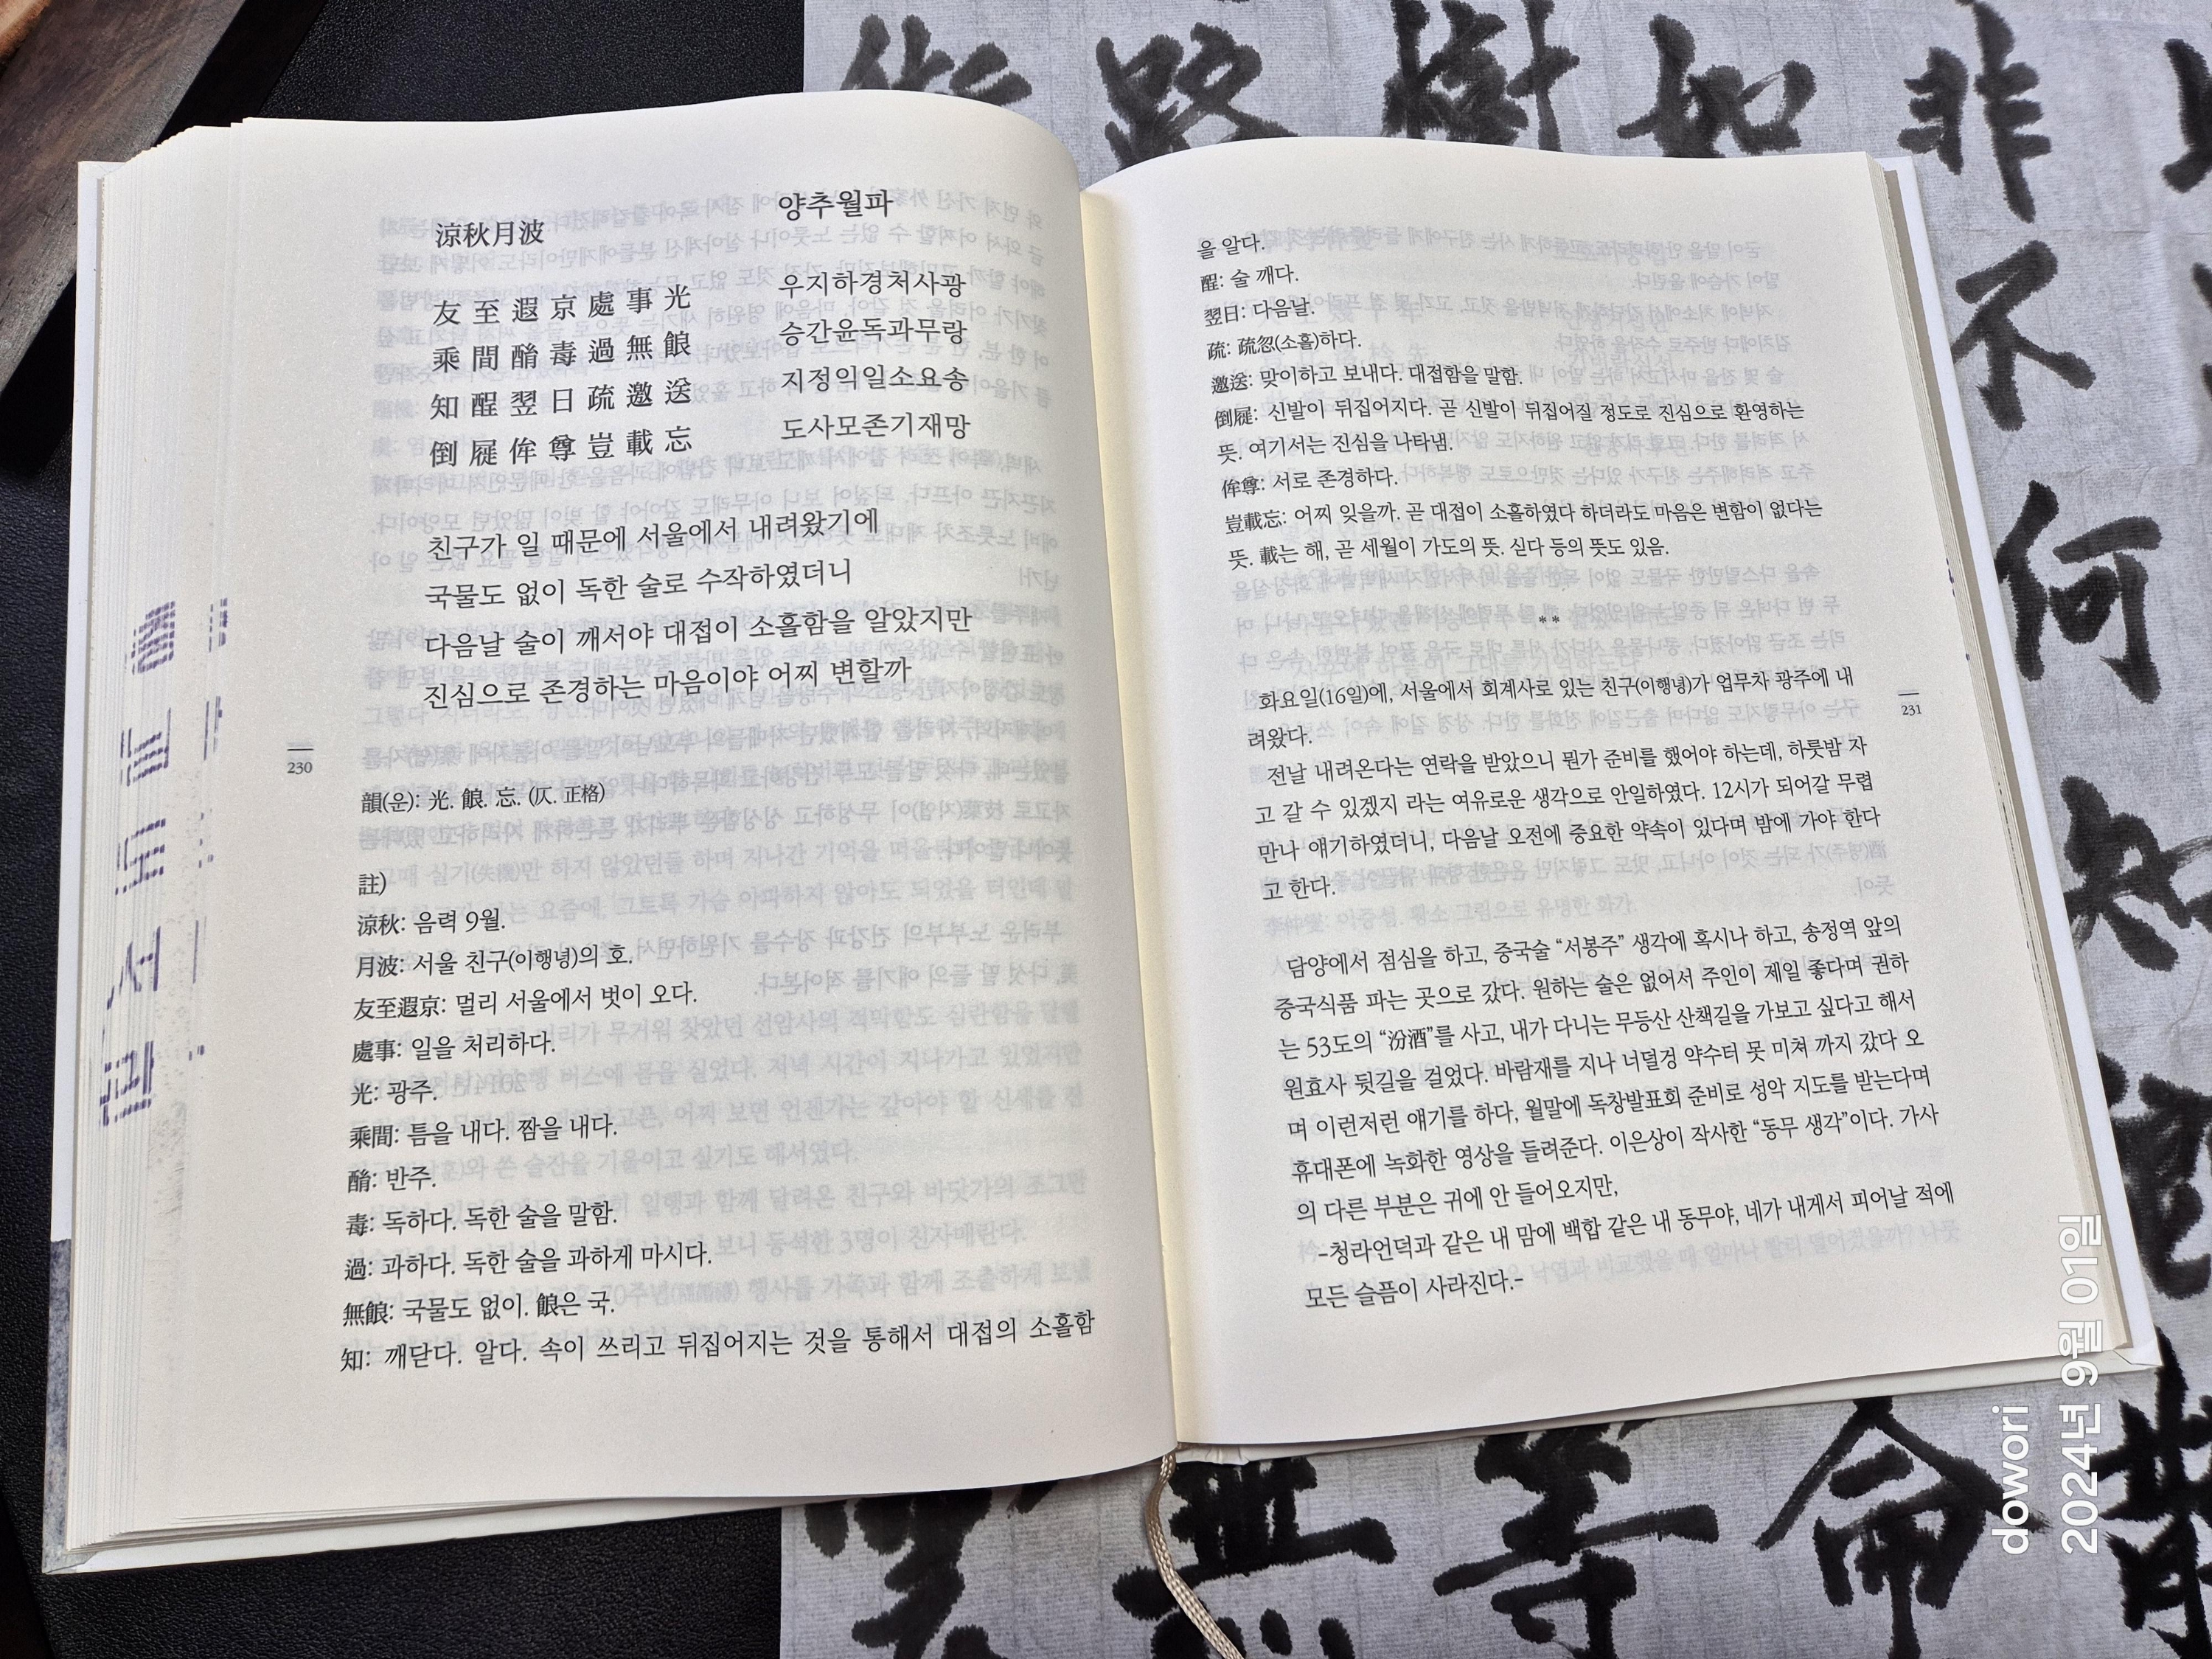 涼秋月波
양추월파
友至遐京處事光
우지하경처사광
乘間酳毒過無食
승간윤독과무랑
知酲翌日疏邀送
지정익일소요송
倒屣侔尊豈載忘
도사모존기재망
친구가 일 때문에 서울에서 내려왔기에
국물도 없이 독한 술로 수작하였더니
다음날 술이 깨서야 대접이 소홀함을 알았지만
진심으로 존경하는 마음이야 어찌 변할까
230
韻(운): 光. 忘. (仄. 正格)
註)
涼秋: 음력 9월.
月波: 서울 친구(이행녕)의 호.
友至遐京: 멀리 서울에서 벗이 오다.
處事: 일을 처리하다.
光: 광주.
乘間: 틈을 내다. 짬을 내다.
酳: 반주.
毒: 독하다. 독한 술을 말함.
過: 과하다. 독한 술을 과하게 마시다.
無: 국물도 없이. 은 국.
知: 깨닫다. 알다. 속이 쓰리고 뒤집어지는 것을 통해서 대접의 소홀함
을 알다.
酲: 술 깨다.
翌日: 다음날.
疏: 疏忽(소홀)하다.
邀送: 맞이하고 보내다. 대접함을 말함.
倒屣: 신발이 뒤집어지다. 곧 신발이 뒤집어질 정도로 진심으로 환영하는
뜻. 여기서는 진심을 나타냄.
侔尊: 서로 존경하다.
豈載忘: 어찌 잊을까. 곧 대접이 소홀하였다 하더라도 마음은 변함이 없다는
뜻. 載는 해, 곧 세월이 가도의 뜻. 싣다 등의 뜻도 있음.
**
화요일(16일)에, 서울에서 회계사로 있는 친구(이행녕)가 업무차 광주에 내
려왔다.
전날 내려온다는 연락을 받았으니 뭔가 준비를 했어야 하는데, 하룻밤 자
고 갈 수 있겠지 라는 여유로운 생각으로 안일하였다. 12시가 되어갈 무렵
만나 얘기하였더니, 다음날 오전에 중요한 약속이 있다며 밤에 가야 한다
고 한다.
담양에서 점심을 하고, 중국술 “서봉주” 생각에 혹시나 하고, 송정역 앞의
중국식품 파는 곳으로 갔다. 원하는 술은 없어서 주인이 제일 좋다며 권하
는 53도의 “汾酒”를 사고, 내가 다니는 무등산 산책길을 가보고 싶다고 해서
원효사 뒷길을 걸었다. 바람재를 지나 너덜겅 약수터 못 미쳐 까지 갔다 오
며 이런저런 얘기를 하다, 월말에 독창발표회 준비로 성악 지도를 받는다며
휴대폰에 녹화한 영상을 들려준다. 이은상이 작사한 “동무 생각”이다. 가사
의 다른 부분은 귀에 안 들어오지만,
-청라언덕과 같은 내 맘에 백합 같은 내 동무야, 네가 내게서 피어날 적에
모든 슬픔이 사라진다.-
231
路樹如非
不
何
知
無等命
dowori
2024년 9월 01일